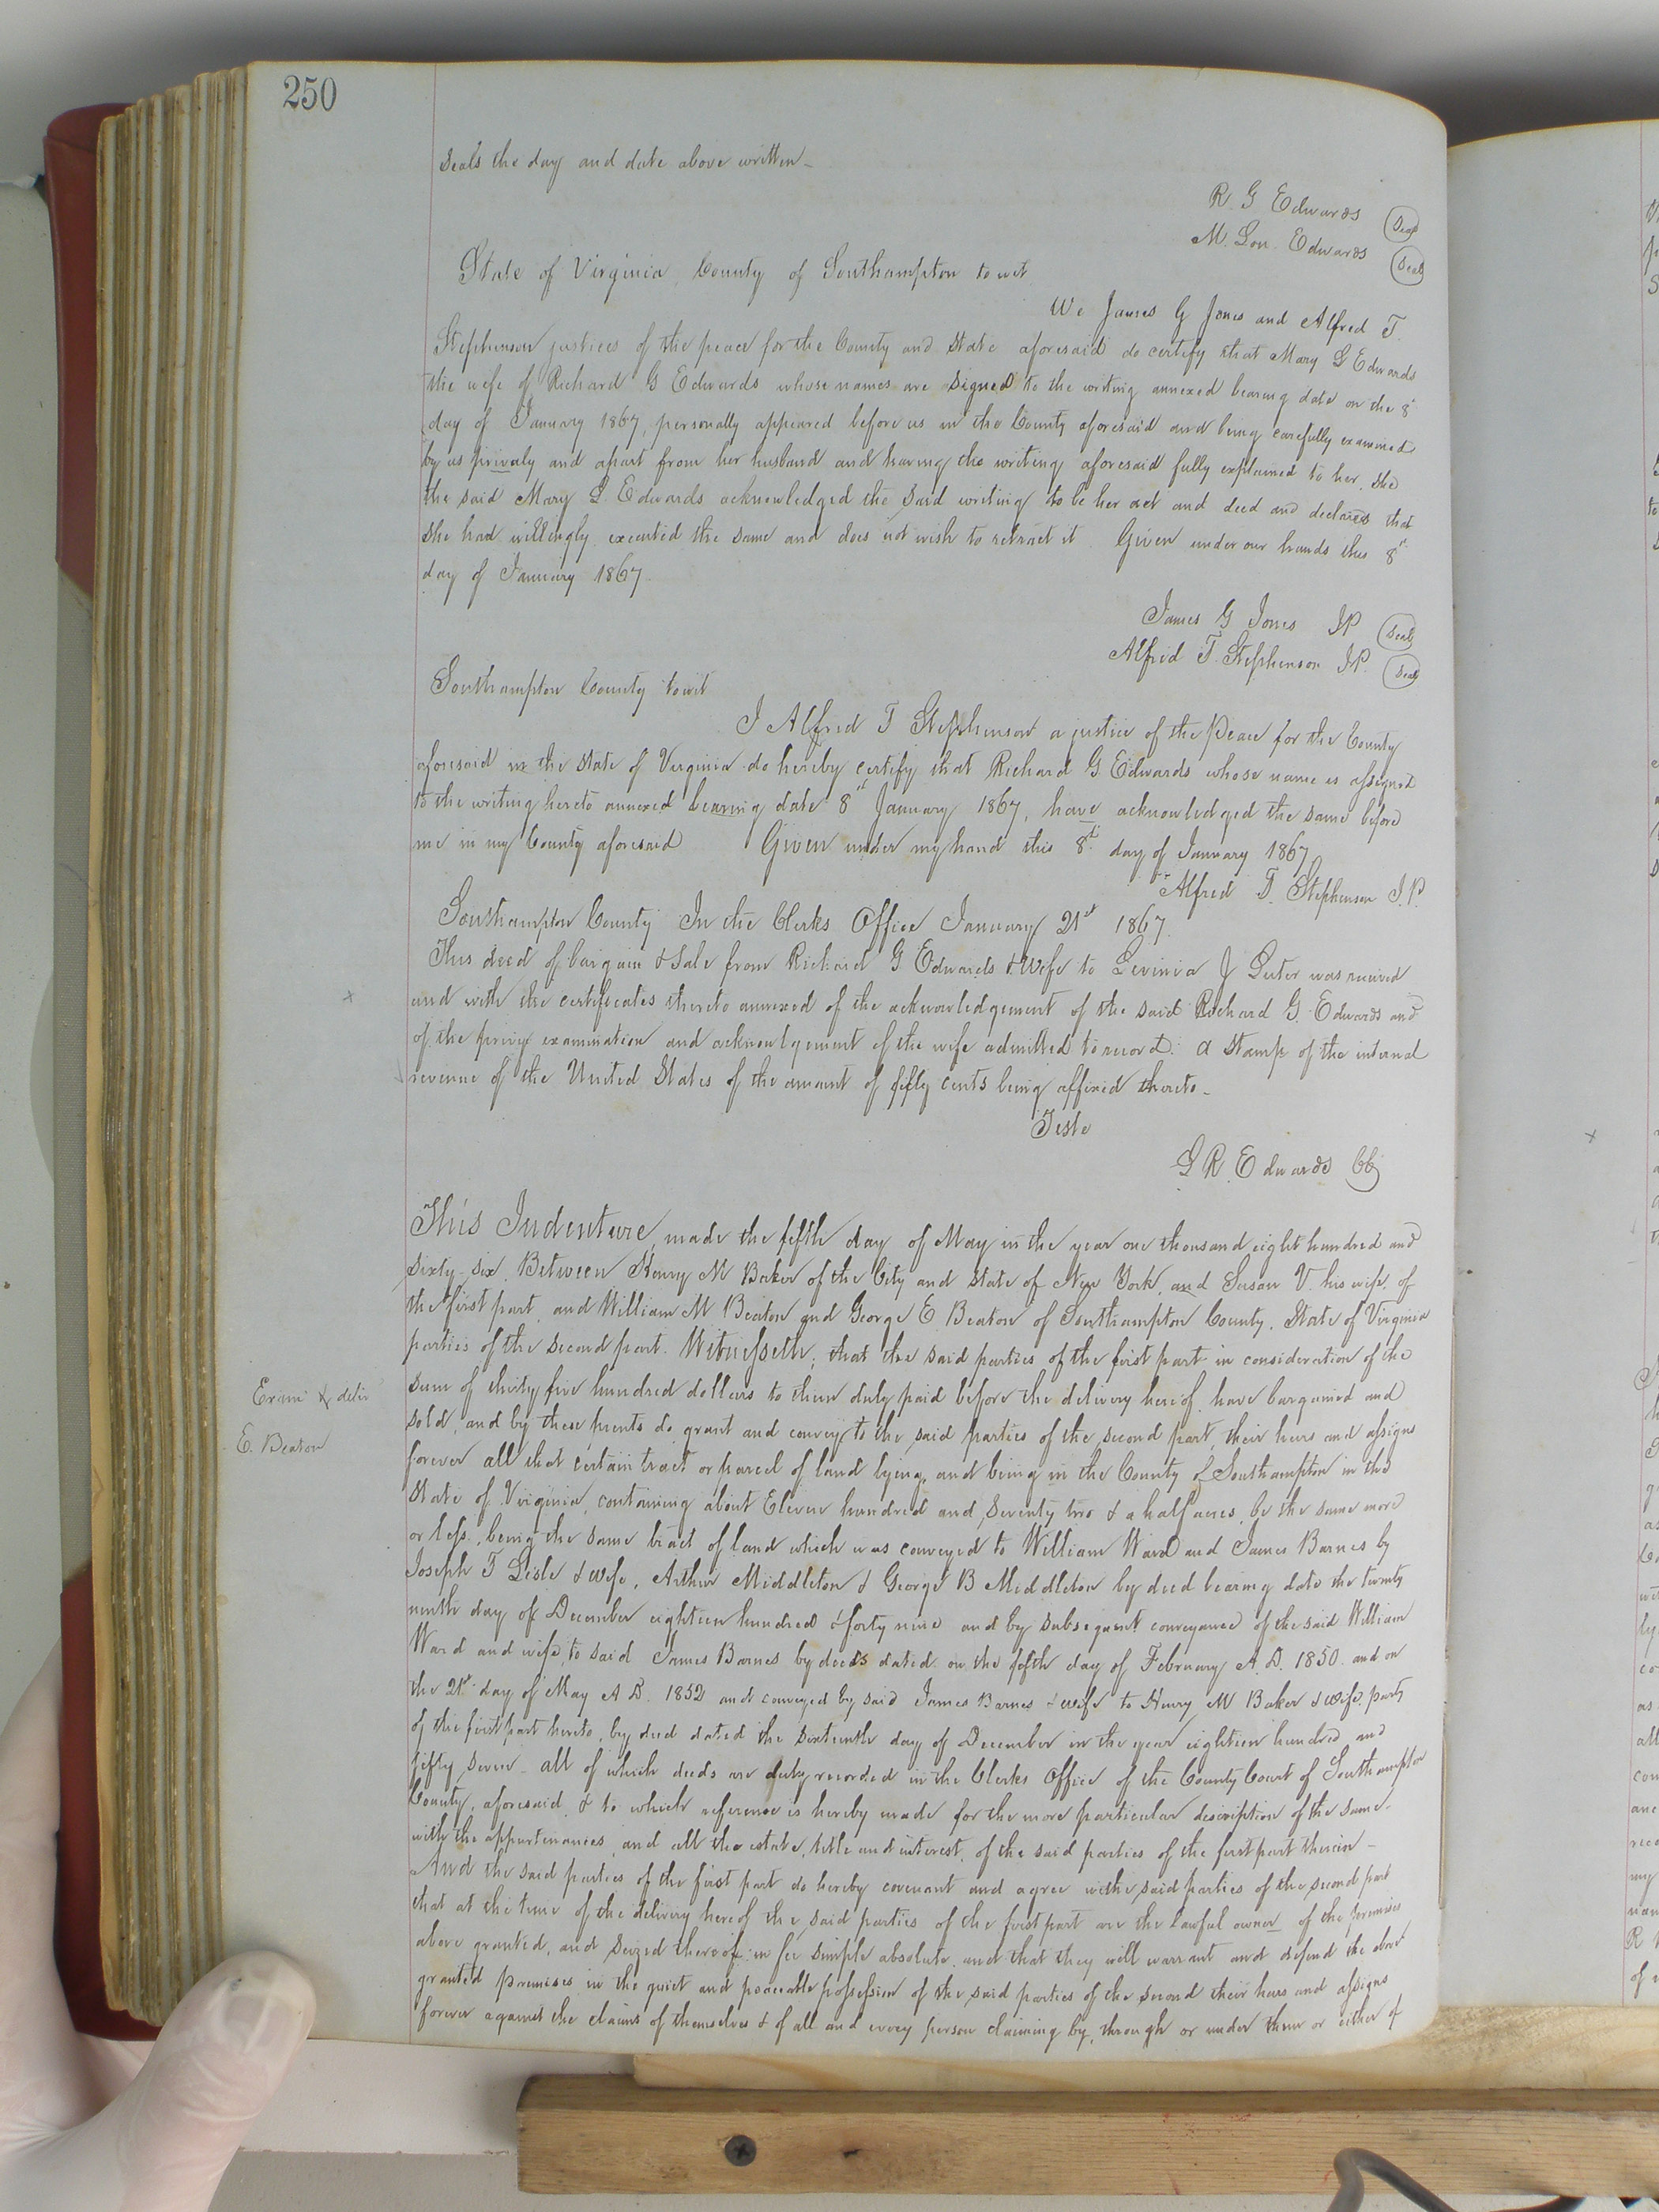 250
Seals the day and date above written_
R. G Edwards (Seal)
M. Lou. Edwards (Seal)
State of Virginia, County of Southampton to wit
We James G Jones and Alfred T.
Stephenson justices of the peace for the County and State aforesaid do certify that Mary L Edwards
the wife of Richard G Edwards whose names are signed to the writing annexed bearing date on the 8th
day of January 1867, personally appeared before us in the County aforesaid and being carefully examined
by us privaly and apart from her husband and having the writing aforesaid fully explained to her. she
the said Mary L. Edwards acknowledged the said writing to be her act and deed and declared that
she had willingly executed the same and does not wish to retract it Given under our hands this 8th
day of January 1867.
James G Jones JP (Seal)
Alfred T. Stephenson JP. (Seal)
Southampton County towit
I Alfred T Stephenson a justice of the Peace for the County
aforesaid in the State of Virginia do hereby certify that Richard G. Edwards whose name is assigned
to the writing hereto annexed bearing date 8th January 1867, have acknowledged the same before
me in my County aforesaid Given under my hand this 8th day of January 1867.
Alfred T. Stephenson J.P.
Southampton County In the Clerks Office January 21st 1867.
This deed of bargain & Sale from Richard G Edwards & Wife to Levinia J Luter was received
and with the certificates thereto annexed of the acknowledgement of the said Richard G. Edwards and
of the privy examination and acknowlgement of the wife admitted to record. a Stamp of the internal
revenue of the United States of the amount of fifty cents being affixed thereto_
Teste
L R. Edwards CC
This Indenture, made the fifth day of May in the year one thousand eight hundred and
sixty-six. Between Henry M Baker of the City and State of New York, and Susan V. his wife. of
the first part, and William M Beaton and George E. Beaton of Southampton County. State of Virginia
parties of the second part. Witnesseth; that the said parties of the first part in consideration of the
Exmd & delie
sum of thirty five hundred dollars to them duly paid before the delivery hereof. have bargained and
E. Beaton
sold, and by these prents do grant and convey to the said parties of the second part, their heirs and assigns
forever all that certain tract or parcel of land lying, and being in the County of Southampton in the
State of Virginia, containing about Eleven hundred and, Seventy two & a half acres, be the same more
or less, being the same tract of land which was conveyed to William Ward and James Barnes by
Joseph T Lisle & wife, Arthur Middleton & George B Middleton by deed bearing date the twenty
ninth day of December eighteen hundred & forty nine and by subsequent conveyance of the said William
Ward and wife to said James Barnes by deeds dated on the fifth day of February A.D. 1850 and on
the 21st day of May A D. 1852 and conveyed by said James Barnes & wife to Henry M Baker & wife. party
of the first part hereto, by deed dated the sixteenth day of December in the year eighteen hundred and
fifty seven_ all of which deeds are duly recorded in the Clerks Office of the County Court of Southampton
County, aforesaid, & to which reference is hereby made for the more particular description of the same.
with the appurtenances, and all the estate, title and interest, of the said parties of the first part therein_
And the said parties of the first part do hereby covenant and agree withe, said parties of the second part
that at the time of the delivery hereof the said parties of the first part are the lawful owner of the premises
above granted, and seized thereof in fee simple absolute. and that they will warrant and defend the above
granted premises in the quiet and peaceable possession of the said parties of the second their heirs and assigns
forever against the claims of themselves & of all and every person claiming by, through or under them or either of